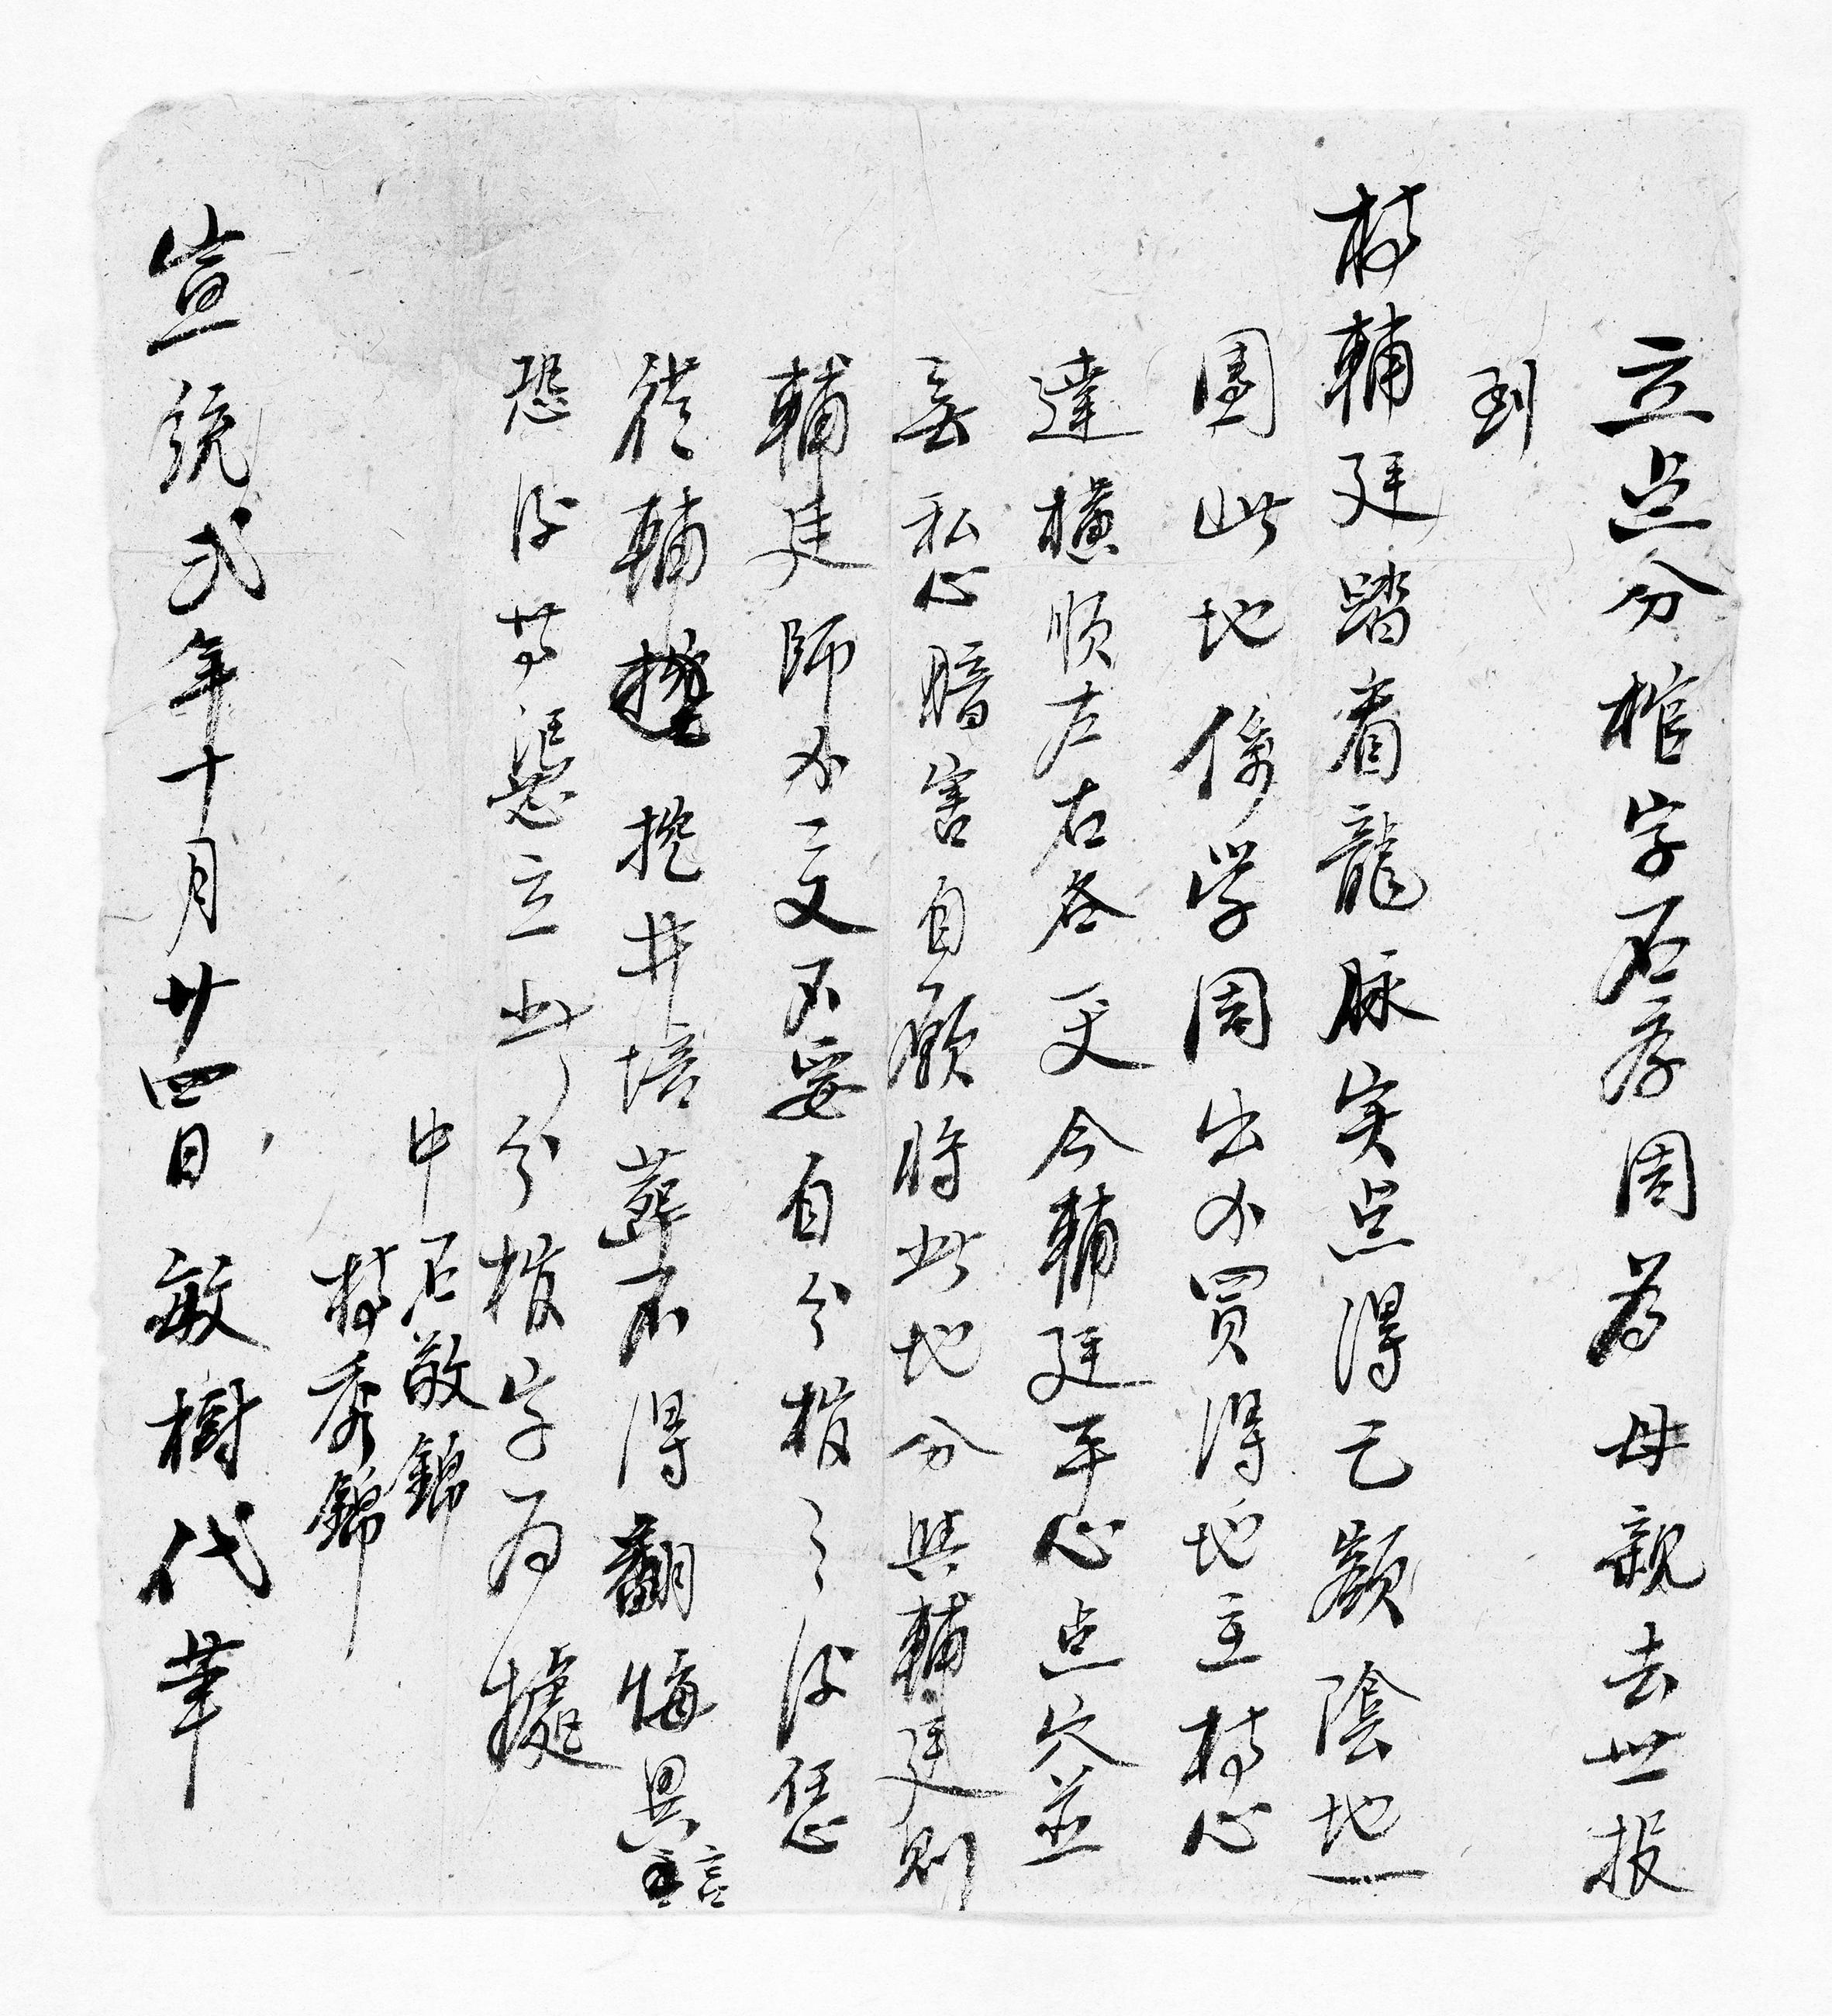 立点分棺字石荐周為母親去世报
到
林輔廷踏看龍脉实点得乙嶺陰地一
團此地係学周出公買得地主林心
達橫順左右各一丈今輔廷平心点穴並
無私心暗害自願將此地分與輔廷則
輔廷師公二丈不妥自分棺之後恁
從輔挖井培葬不得翻悔異言
恐後無憑立此分棺字為據
中石敬錦
林秀錦
宣統弍年十月廿四日敏樹代筆